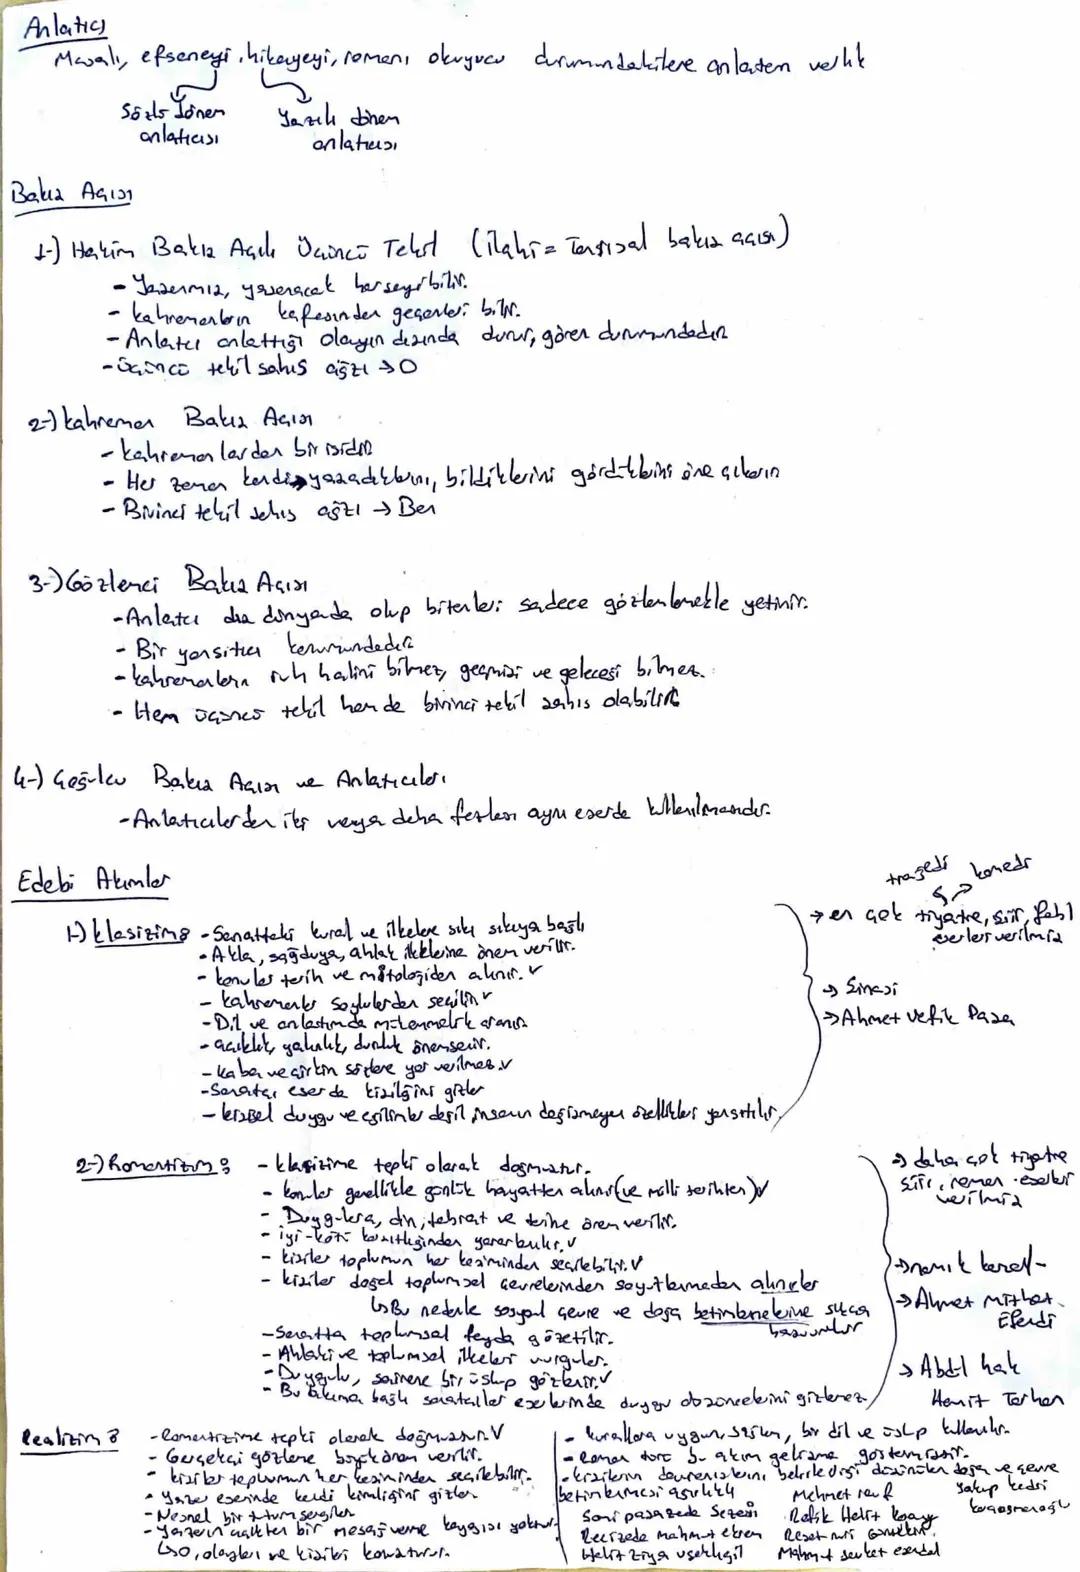 Anlatıcı
Masalı, efsaneyi, hikayeyi, romanı okuyucu durumundakilere anlatan varlık
Sözlü dönem anlatıcısı
Yazılı dönem anlatıcısı
Bakış Açısı
1-) Hakim Bakış Açılı Üçüncü Tekil (ilahi = Tanrısal bakış açısı)
- Yaşanmış, yaşanacak her şeyi bilir.
- kahramanların kafasından geçenleri bilir.
- Anlatıcı anlattığı olayın dışında durur, gören durumundadır
- Üçüncü tekil şahıs ağzı → O
2-) kahraman Bakış Açısı
- kahramanlardan birisidir
- Her zaman kendi yaşadıklarını, bildiklerini gördüklerini öne çıkarır
- Birinci tekil şahıs ağzı → Ben
3-) Gözlemci Bakış Açısı
- Anlatıcı dış dünyada olup bitenleri sadece gözlemlemekle yetinir.
- Bir yansıtıcı konumundadır
- kahramanların ruh halini bilmez, geçmişi ve geleceği bilmez.
- Hem üçüncü tekil hem de birinci tekil şahıs olabilir
4-) Çoğulcu Bakış Açısı ve Anlatıcıları
- Anlatıcılardan iki veya daha fazlası aynı eserde kullanılmasıdır.
Edebi Akımlar
trajedi komedi
1-) klasizim: - Sanattaki kural ve ilkelere sıkı sıkıya bağlı
→ en çok tiyatro, şiir, fabl eserleri verilmiş
- Akla, sağduyu, ahlak ilkelerine önem verilir.
- konular tarih ve mitolojiden alınır. ✓
- kahramanlar soylulardan seçilir ✓
→ Şinasi
- Dil ve anlatımda mükemmellik aranır
→ Ahmet Vefik Paşa
- açıklık, yalınlık, duruluk önemsenir.
- kaba ve çirkin sözlere yer verilmez. ✓
- Sanatçı eserde kişiliğini gizler
- kişisel duygu ve eğilimler değil insanın değişmeyen özellikleri yansıtılır.
2-) Romantizm: - klasizime tepki olarak doğmuştur.
→ daha çok tiyatro şiir, roman eserleri verilmiş
- konular genellikle günlük hayattan alınır (ve milli tarihten) ✓
- Duygulara, din, tabiat ve tarihe önem verilir.
- iyi-kötü karşıtlığından yararlanılır. ✓
- kişiler toplumun her kesiminden seçilebilir. ✓
→ namık kemal
- kişiler doğal toplumsal çevrelerinden soyutlanmadan alınırlar
→ Ahmet Mithat Efendi
↳ Bu nedenle sosyal çevre ve doğa betimlemelerine sıkça başvurulur
- Sanatta toplumsal fayda gözetilir.
- Ahlaki ve toplumsal ilkeleri vurgular.
→ Abdülhak Hamit Tarhan
- Duygulu, şairane bir üslup gözlenir. ✓
- Bu akıma bağlı sanatçılar eserlerinde duygu düşüncelerini gizlemez
Realizim: - Romantizime tepki olarak doğmuştur. ✓
- Gerçekçi gözleme büyük önem verilir.
- kişiler toplumun her kesiminden seçilebilir.
- Yazar eserinde kendi kimliğini gizler
- Nesnel bir tutum sergiler
- Yazarın açıktan bir mesaj verme kaygısı yoktur.
↳ O, olayları ve kişileri konuşturur.
- kurallara uygun, sağlam, bir dil ve üslup kullanılır.
- Roman türü bu akım gelişme göstermiştir.
- kişilerin davranışlarını belirlediği düşünülen doğa ve çevre betimlemesi ağırlıklı
Sami paşazade Sezai
Recizade Mahmut ekrem
Halit Ziya uşaklıgil
Mehmet rauf
Refik Halit karay
Reşat nuri Güntekin
Mahmut şevket esendal
Yakup kadri karaosmanoğlu